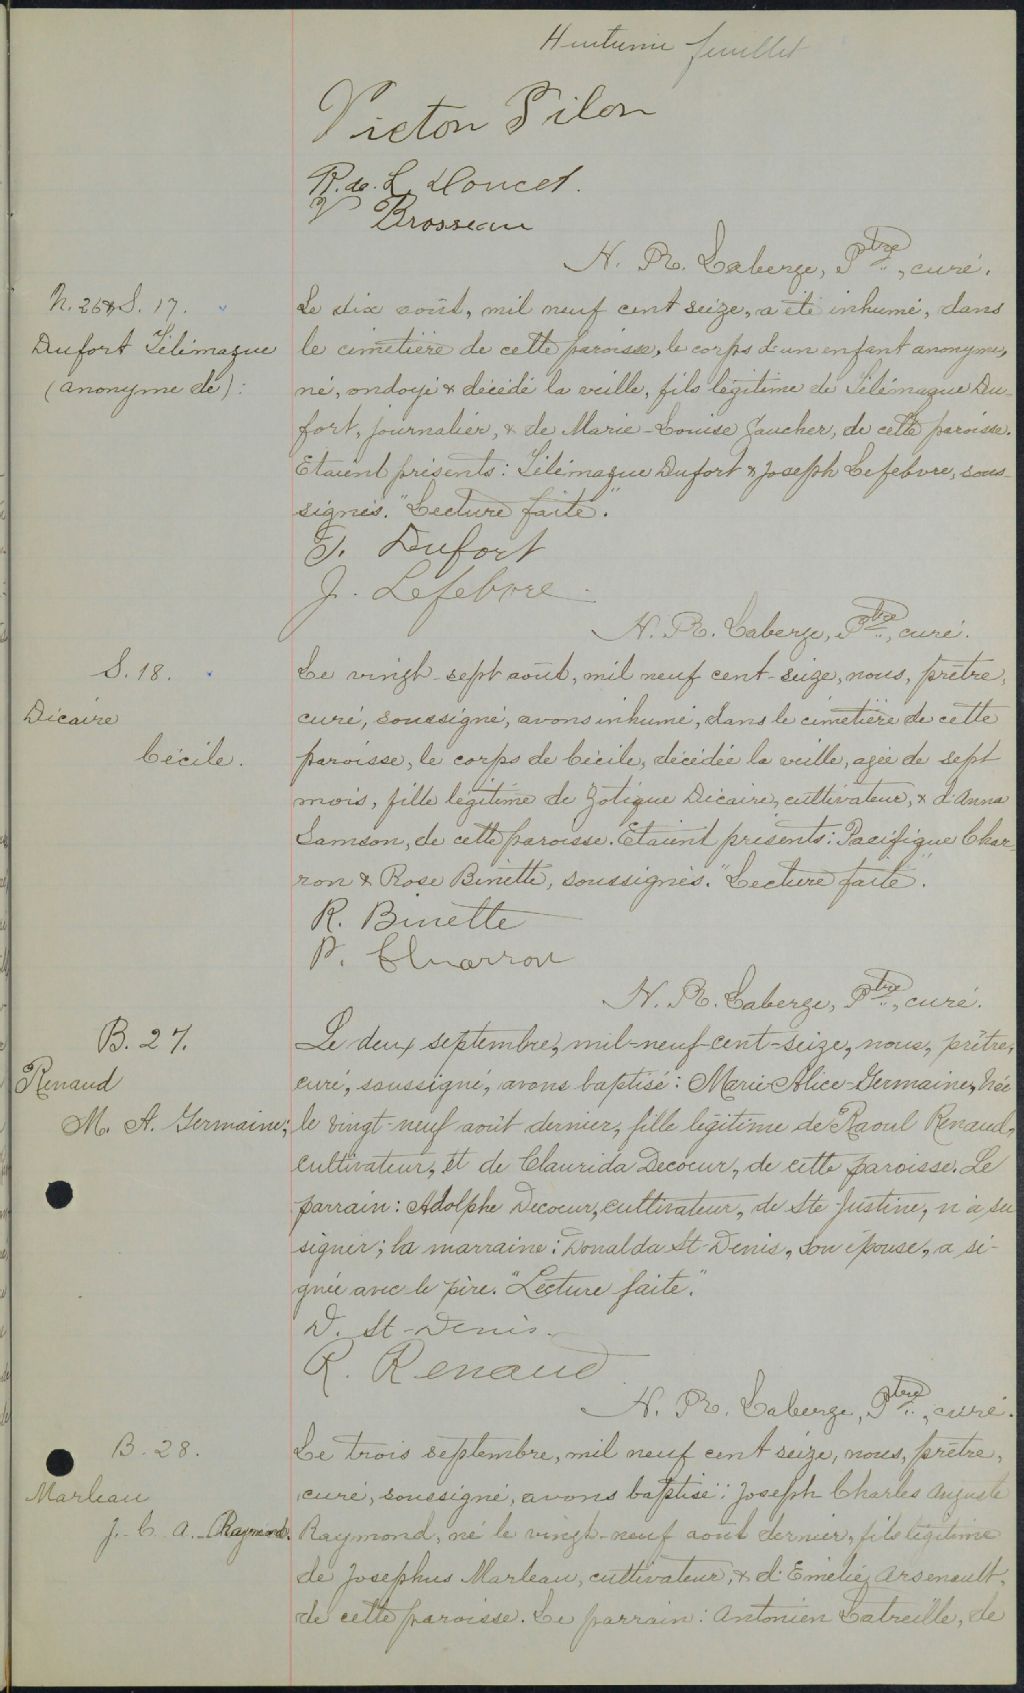 Huitième feuillet
Victor Pilon
R. de L. Doucet.
V Brosseau
N. R. Laberge, Ptre, curé.
N. 26 & S. 17.
Dufort Télémaque
(anonyme de):
Le dix août, mil neuf cent seize, a été inhumé, dans
le cimetière de cette paroisse, le corps d'un enfant anonyme,
né, ondoyé & décédé la veille, fils légitime de Télémaque Du-
fort, journalier, & de Marie-Louise Gaucher, de cette paroisse.
Etaient présents: Télémaque Dufort & Joseph Lefebvre, sous-
signés. "Lecture faite."
T. Dufort
J. Lefebvre
N. R. Laberge, Ptre, curé.
S. 18.
Dicaire
Cécile.
Le vingt-sept août, mil neuf cent-seize, nous, prêtre,
curé, soussigné, avons inhumé, dans le cimetière de cette
paroisse, le corps de Cécile, décédée la veille, agée de sept
mois, fille légitime de Zotique Dicaire, cultivateur, & d'Anna
Samson, de cette paroisse. Etaient présents: Pacifique Char-
ron & Rose Binette, soussignés. "Lecture faite".
R. Binette
P. Charron
N. R. Laberge, Ptre, curé.
B. 27.
Renaud
M. A. Germaine;
Le deux septembre, mil-neuf-cent-seize, nous, prêtre,
curé, soussigné, avons baptisé: Marie-Alice-Germaine, née
le vingt-neuf août dernier, fille légitime de Raoul Renaud,
cultivateur, et de Claurida Decoeur, de cette paroisse. Le
parrain: Adolphe Decoeur, cultivateur, de Ste-Justine, n'a su
signer; la marraine: Donalda St-Denis, son épouse, a si-
gnée avec le père. "Lecture faite."
D. St-Denis.
R. Renaud
N. R. Laberge, Ptre, curé.
B. 28.
Marleau
J. C. A. Raymond.
Le trois septembre, mil neuf cent seize, nous, prêtre,
curé, soussigné, avons baptisé: Joseph Charles Auguste
Raymond, né le vingt-neuf août dernier, fils légitime
de Josephus Marleau, cultivateur, & d'Emélie Arsenault,
de cette paroisse. Le parrain: Antonien Latreille, de